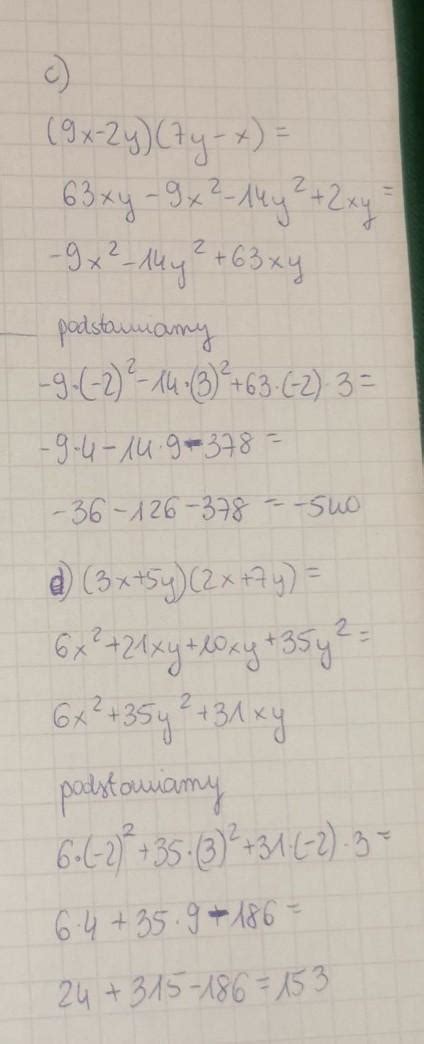 c)
(9x-2y)(7y-x)=
63xy-9x²-14y²+2xy=
-9x²-14y²+63xy
podstawiamy
-9·(-2)²-14·(3)²+63·(-2)·3=
-9·4-14·9-378=
-36-126-378=-540
d) (3x+5y)(2x+7y)=
6x²+21xy+10xy+35y²=
6x²+35y²+31xy
podstawiamy
6·(-2)²+35·(3)²+31·(-2)·3=
6·4+35·9-186=
24+315-186=153